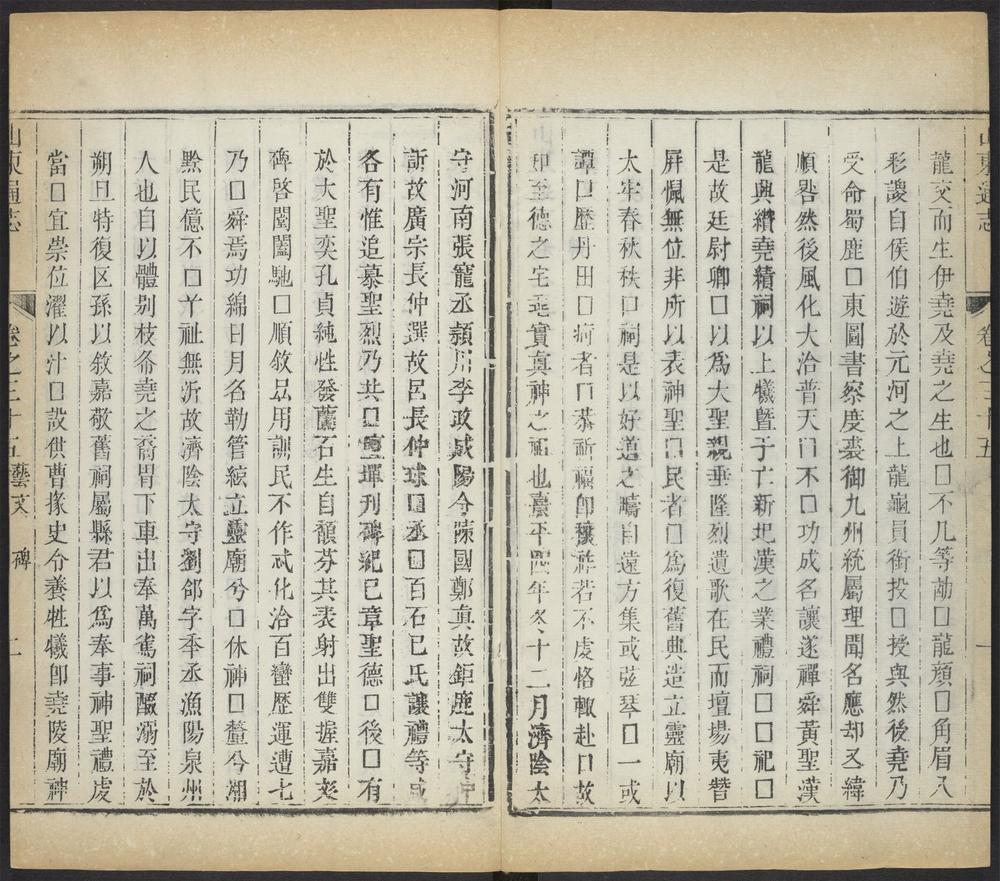 龍交而生伊堯及堯之生也口不凡等勛口龍顔口角眉八
彩謖自侯伯遊於元河之上龍龜員銜投口授與然後堯乃
受命蜀鹿口東圖書察度裘御九州統屬理聞名應却又緯
順咎然後風化大洽普天口不口功成名讓遂禪舜黃聖漢
龍興纘堯績祠以上犧曁于亡新圯漢之業禮祠口口祀口
是故廷尉卿口以爲大聖親垂隆烈遺歌在民而壇場夷朁
屏慑無位非所以表神聖口民者口爲復舊典造立靈廟以
太牢春秋秩口祠是以好道之疇自遠方集或弦琴口一或
譚口歷丹田口疴者口恭祈福卽獲祚若不虔恪輙赴口故
知至德之宅兆實眞神之祖也熹平四年冬十二月濟陰太
守河南張寵丞潁川李政咸陽令陳國鄭眞故鉅鹿太守仲
訢故廣宗長仲選故呂長仲球口丞口百石巳氏讓禮等咸
各有惟追慕聖烈乃共口壇墠刋碑紀巳章聖德口後口有
於大聖奕孔貞純性發蘭石生自馥芬其表射出雙握嘉爻
碑啓闓闔馳口順敘品用訓民不作忒化洽百蠻歷運遭七
乃口舜焉功綿日月名勒管絃立靈廟兮口休神口釐兮湘
黔民億不口丫祉無沂故濟陰太守劉郃字季丞漁陽泉州
人也自以體别枝希堯之裔胃下車出奉萬雀祠醊溺至於
朔旦特復区孫以敘嘉敬舊祠屬縣君以爲奉事神聖禮虔
當口宜崇位濯以汁口設供曹掾史分養牲犧卽堯陵廟神
山東通志
卷之三十五
藝文
碑
一
二